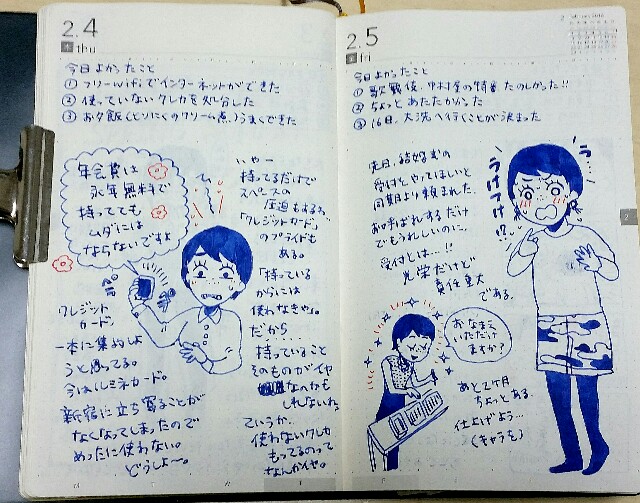 2.4
木 thu
今日よかったこと
① フリーwifiでインターネットができた
② 使っていないクレカを処分した
③ お夕飯(とりにくのクリーム煮)うまくできた
年会費は
永年無料で
持ってても
ムダには
ならないですよ
いやー
持ってるだけで
スペースの
圧迫もするわ、
「クレジットカード」
のプライドも
ある。
「持っている
からには
使わなきゃ」。
だから
持っていること
そのものがイヤ
なんかも
しれないわ。
ていうか、
使わないクレカ
もってるのって
なんかイヤ。
クレジット
カード」
一本に集約しよ
うと思ってる。
今はルミネカード。
新宿に立ち寄ることが
なくなってしまったので
めったに使わない。
どうしよ〜。
2.5
金 fri
2 February 2016
今日よかったこと
① 歌戦後、中村屋の特番たのしかった!!
② ちょっとあたたかかった
③ 16日、大洗へ行くことが決まった
先日、結婚式の
受付をやってほしいと
同期より頼まれた。
お呼ばれするだけ
でもうれしいのに、
受付とは…!!
光栄だけど
責任重大
である。
う…
うけつけ
!?
おなまえ
いただけ
ますか?
あと2ヶ月
ちょっとある。
仕上げよう…
(キャラを)
2